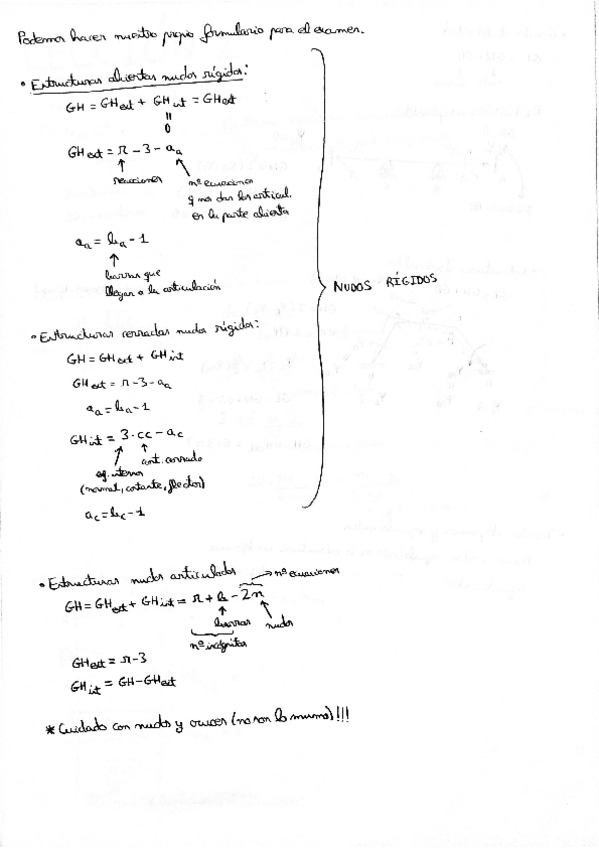 Podemos hacer nuestro propio formulario para el examen.
• Estructuras abiertas nudos rígidos:
GH = GHext + GHint = GHext
=
0
GHext = r - 3 - aa
reacciones
nº ecuaciones
q nos dan las articul.
en la parte abierta
aa = ba - 1
barras que
llegan a la articulación
NUDOS RÍGIDOS
• Estructuras cerradas nudos rígidos:
GH = GHext + GHint
GHext = r - 3 - aa
aa = ba - 1
GHint = 3·cc - ac
cont. cerrado
esf. internos
(normal, cortante, flector)
ac = bc - 1
• Estructuras nudos articulados
nº ecuaciones
GH = GHext + GHint = r + b - 2n
barras
nudos
nº incógnitas
GHext = r - 3
GHint = GH - GHext
* Cuidado con nudos y cruces (no son lo mismo)!!!